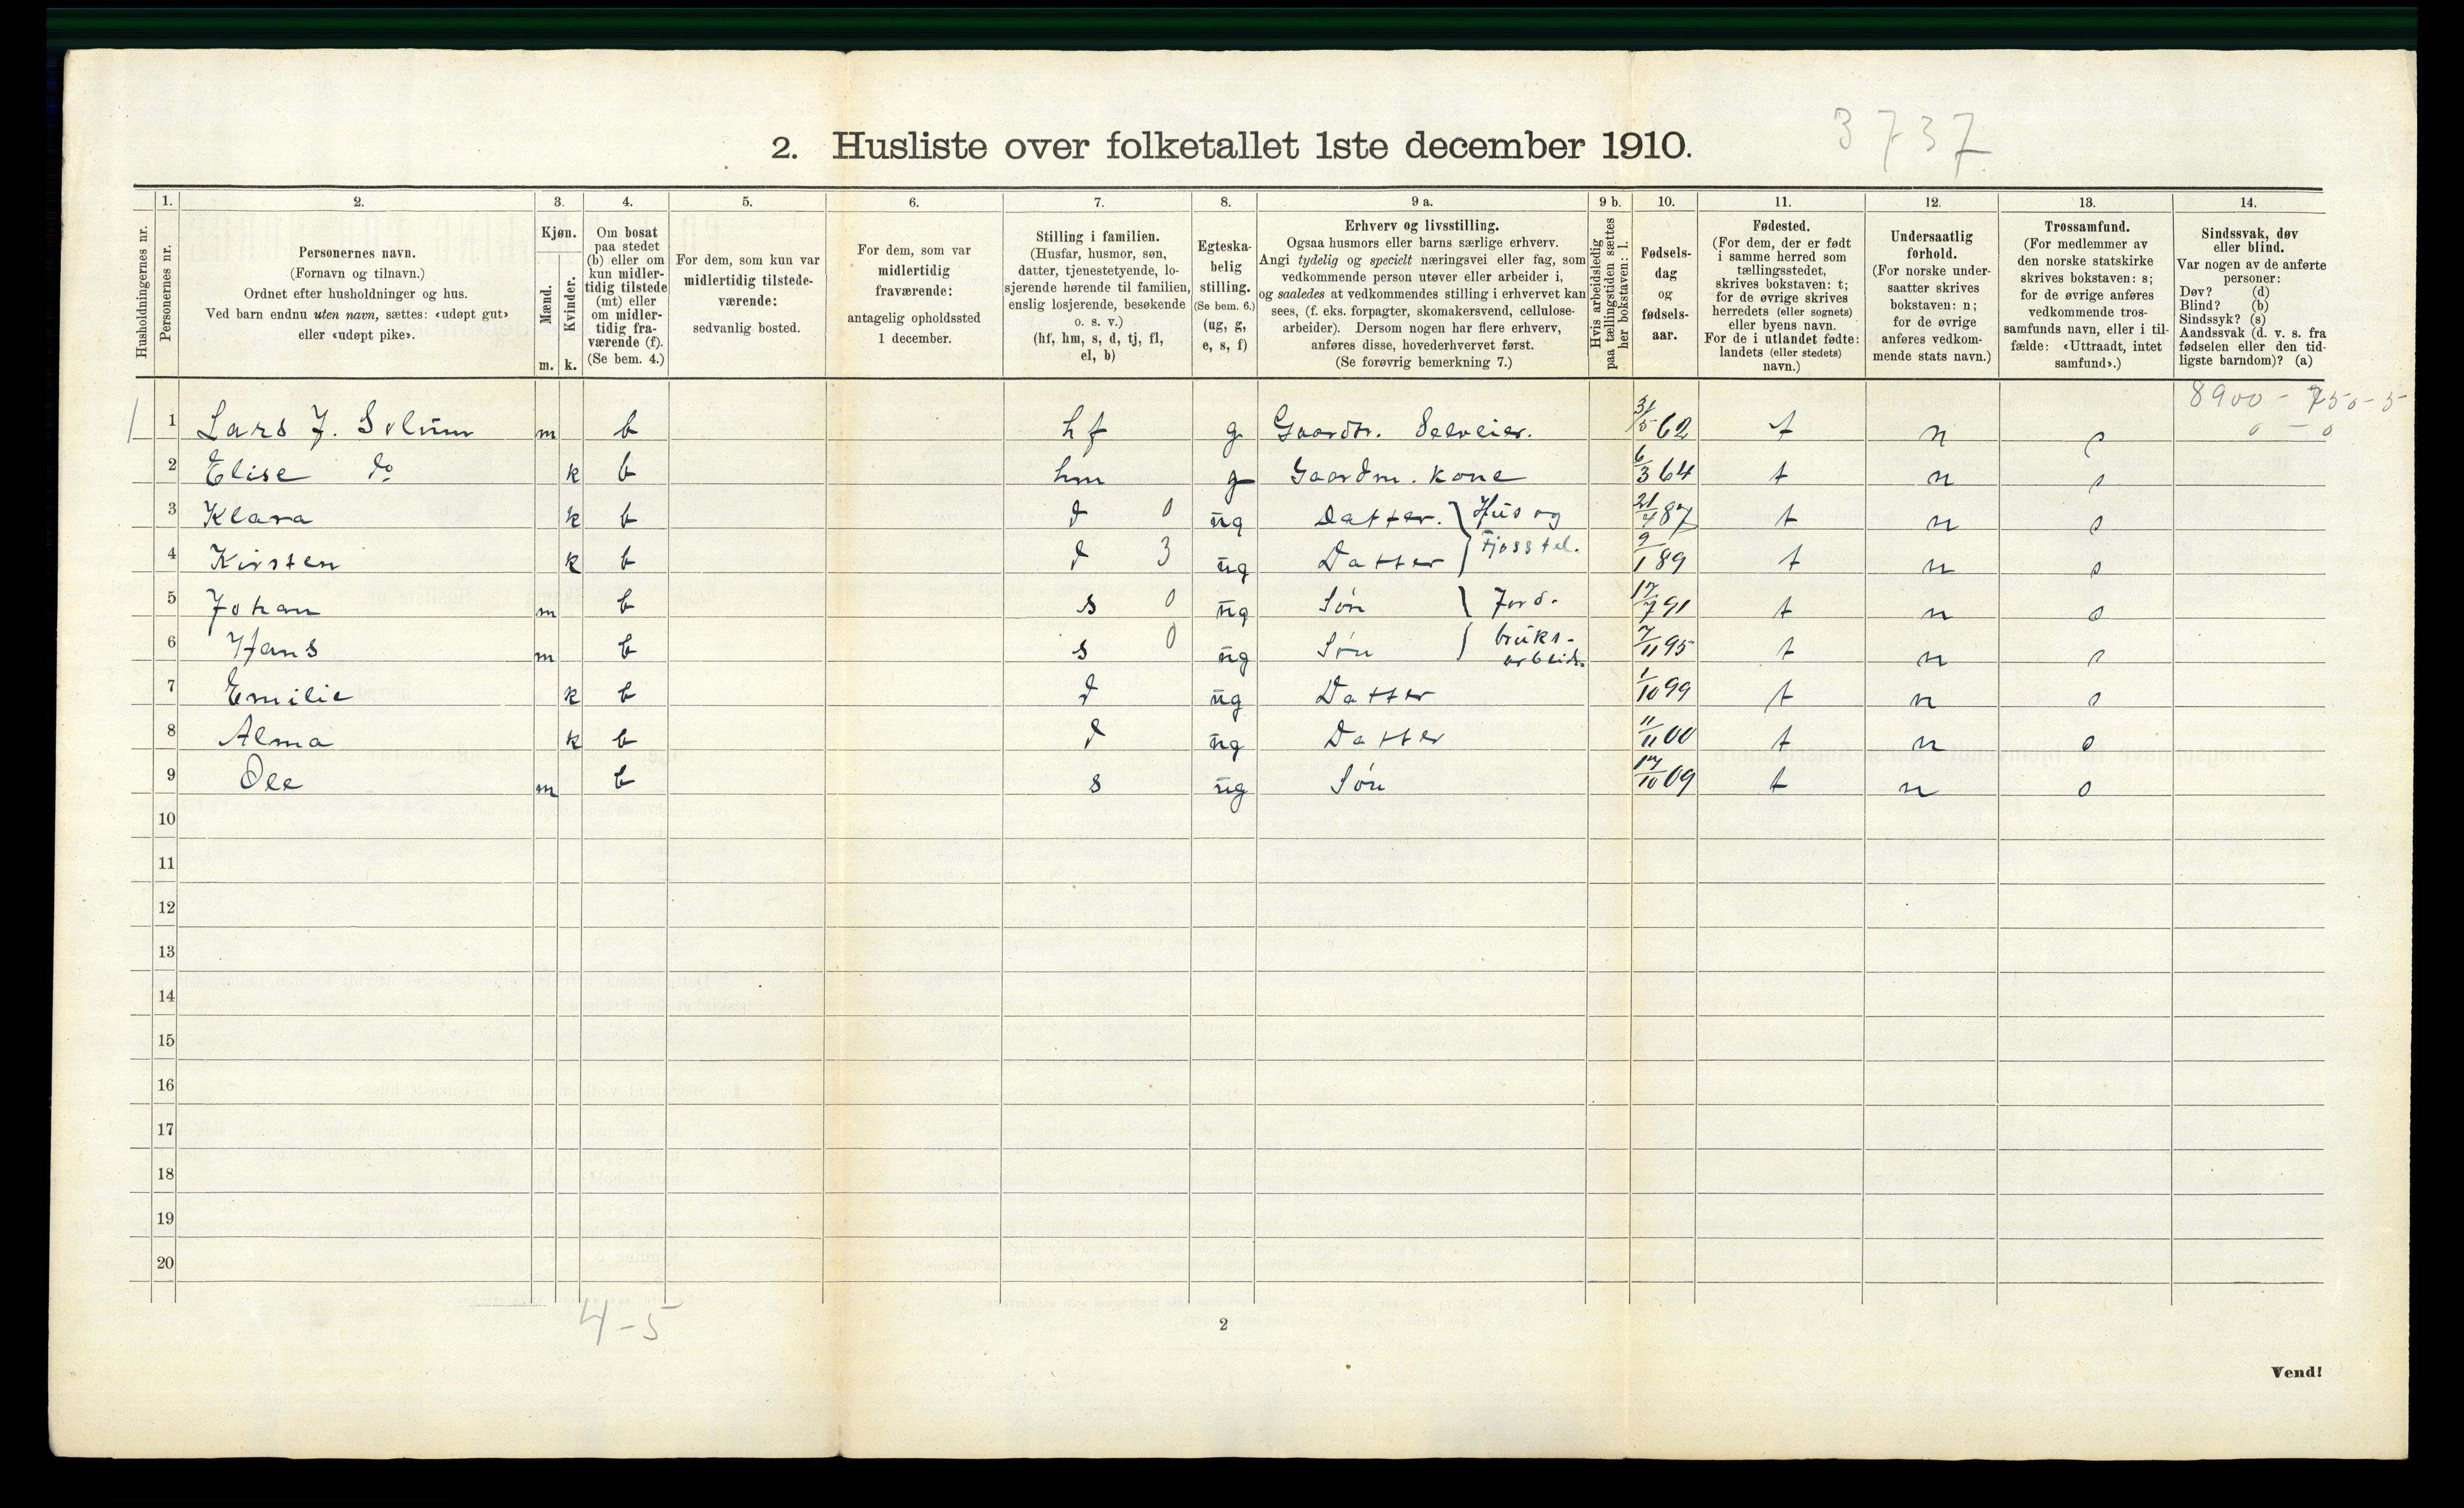 3737
2. Husliste over folketallet 1ste december 1910.
Husholdningernes nr.
1. Personernes nr.
2. Personernes navn.
(Fornavn og tilnavn.)
Ordnet efter husholdninger og hus.
Ved barn endnu uten navn, sættes: «udøpt gut»
eller «udøpt pike».
3. Kjøn.
Mænd. m.
Kvinder. k.
4. Om bosat
paa stedet
(b) eller om
kun midler-
tidig tilstede
(mt) eller
om midler-
tidig fra-
værende (f).
(Se bem. 4.)
5. For dem, som kun var
midlertidig tilstede-
værende:
sedvanlig bosted.
6. For dem, som var
midlertidig
fraværende:
antagelig opholdssted
1 december.
7. Stilling i familien.
(Husfar, husmor, søn,
datter, tjenestetyende, lo-
sjerende hørende til familien,
enslig losjerende, besøkende
o. s. v.)
(hf, hm, s, d, tj, fl,
el, b)
8. Egteska-
belig
stilling.
(Se bem. 6.)
(ug, g,
e, s, f)
9 a. Erhverv og livsstilling.
Ogsaa husmors eller barns særlige erhverv.
Angi tydelig og specielt næringsvei eller fag, som
vedkommende person utøver eller arbeider i,
og saaledes at vedkommendes stilling i erhvervet kan
sees, (f. eks. forpagter, skomakersvend, cellulose-
arbeider). Dersom nogen har flere erhverv,
anføres disse, hovederhvervet først.
(Se forøvrig bemerkning 7.)
9 b. Hvis arbeidsledig
paa tællingstiden sættes
her bokstaven: l.
10. Fødsels-
dag
og
fødsels-
aar.
11. Fødested.
(For dem, der er født
i samme herred som
tællingsstedet,
skrives bokstaven: t;
for de øvrige skrives
herredets (eller sognets)
eller byens navn.
For de i utlandet fødte:
landets (eller stedets)
navn.)
12. Undersaatlig
forhold.
(For norske under-
saatter skrives
bokstaven: n;
for de øvrige
anføres vedkom-
mende stats navn.)
13. Trossamfund.
(For medlemmer av
den norske statskirke
skrives bokstaven: s;
for de øvrige anføres
vedkommende tros-
samfunds navn, eller i til-
fælde: «Uttraadt, intet
samfund».)
14. Sindssvak, døv
eller blind.
Var nogen av de anførte
personer:
Døv? (d)
Blind? (b)
Sindssyk? (s)
Aandssvak (d. v. s. fra
fødselen eller den tid-
ligste barndom)? (a)
8900 - 750-5
0 - 0
1 1 Lars J. Solum m b hf g Gaardbr. Selveier. 31/5 62 t n s
2 Elise do k b hm g Gaardm. kone 6/3 64 t n s
3 Klara k b d 0 ug Datter. } Hus og 21/4 87 t n s
4 Kirsten k b d 3 ug Datter } Fjosstel. 9/1 89 t n s
5 Johan m b s 0 ug Søn } Jord- 17/7 91 t n s
6 Hans m b s 0 ug Søn } bruks- arbeid. 7/11 95 t n s
7 Emilie k b d ug Datter 1/10 99 t n s
8 Alma k b d ug Datter 11/11 00 t n s
9 Ole m b s ug Søn 17/10 09 t n s
10
11
12
13
14
15
16
17
18
19
20
4-5
2
Vend!